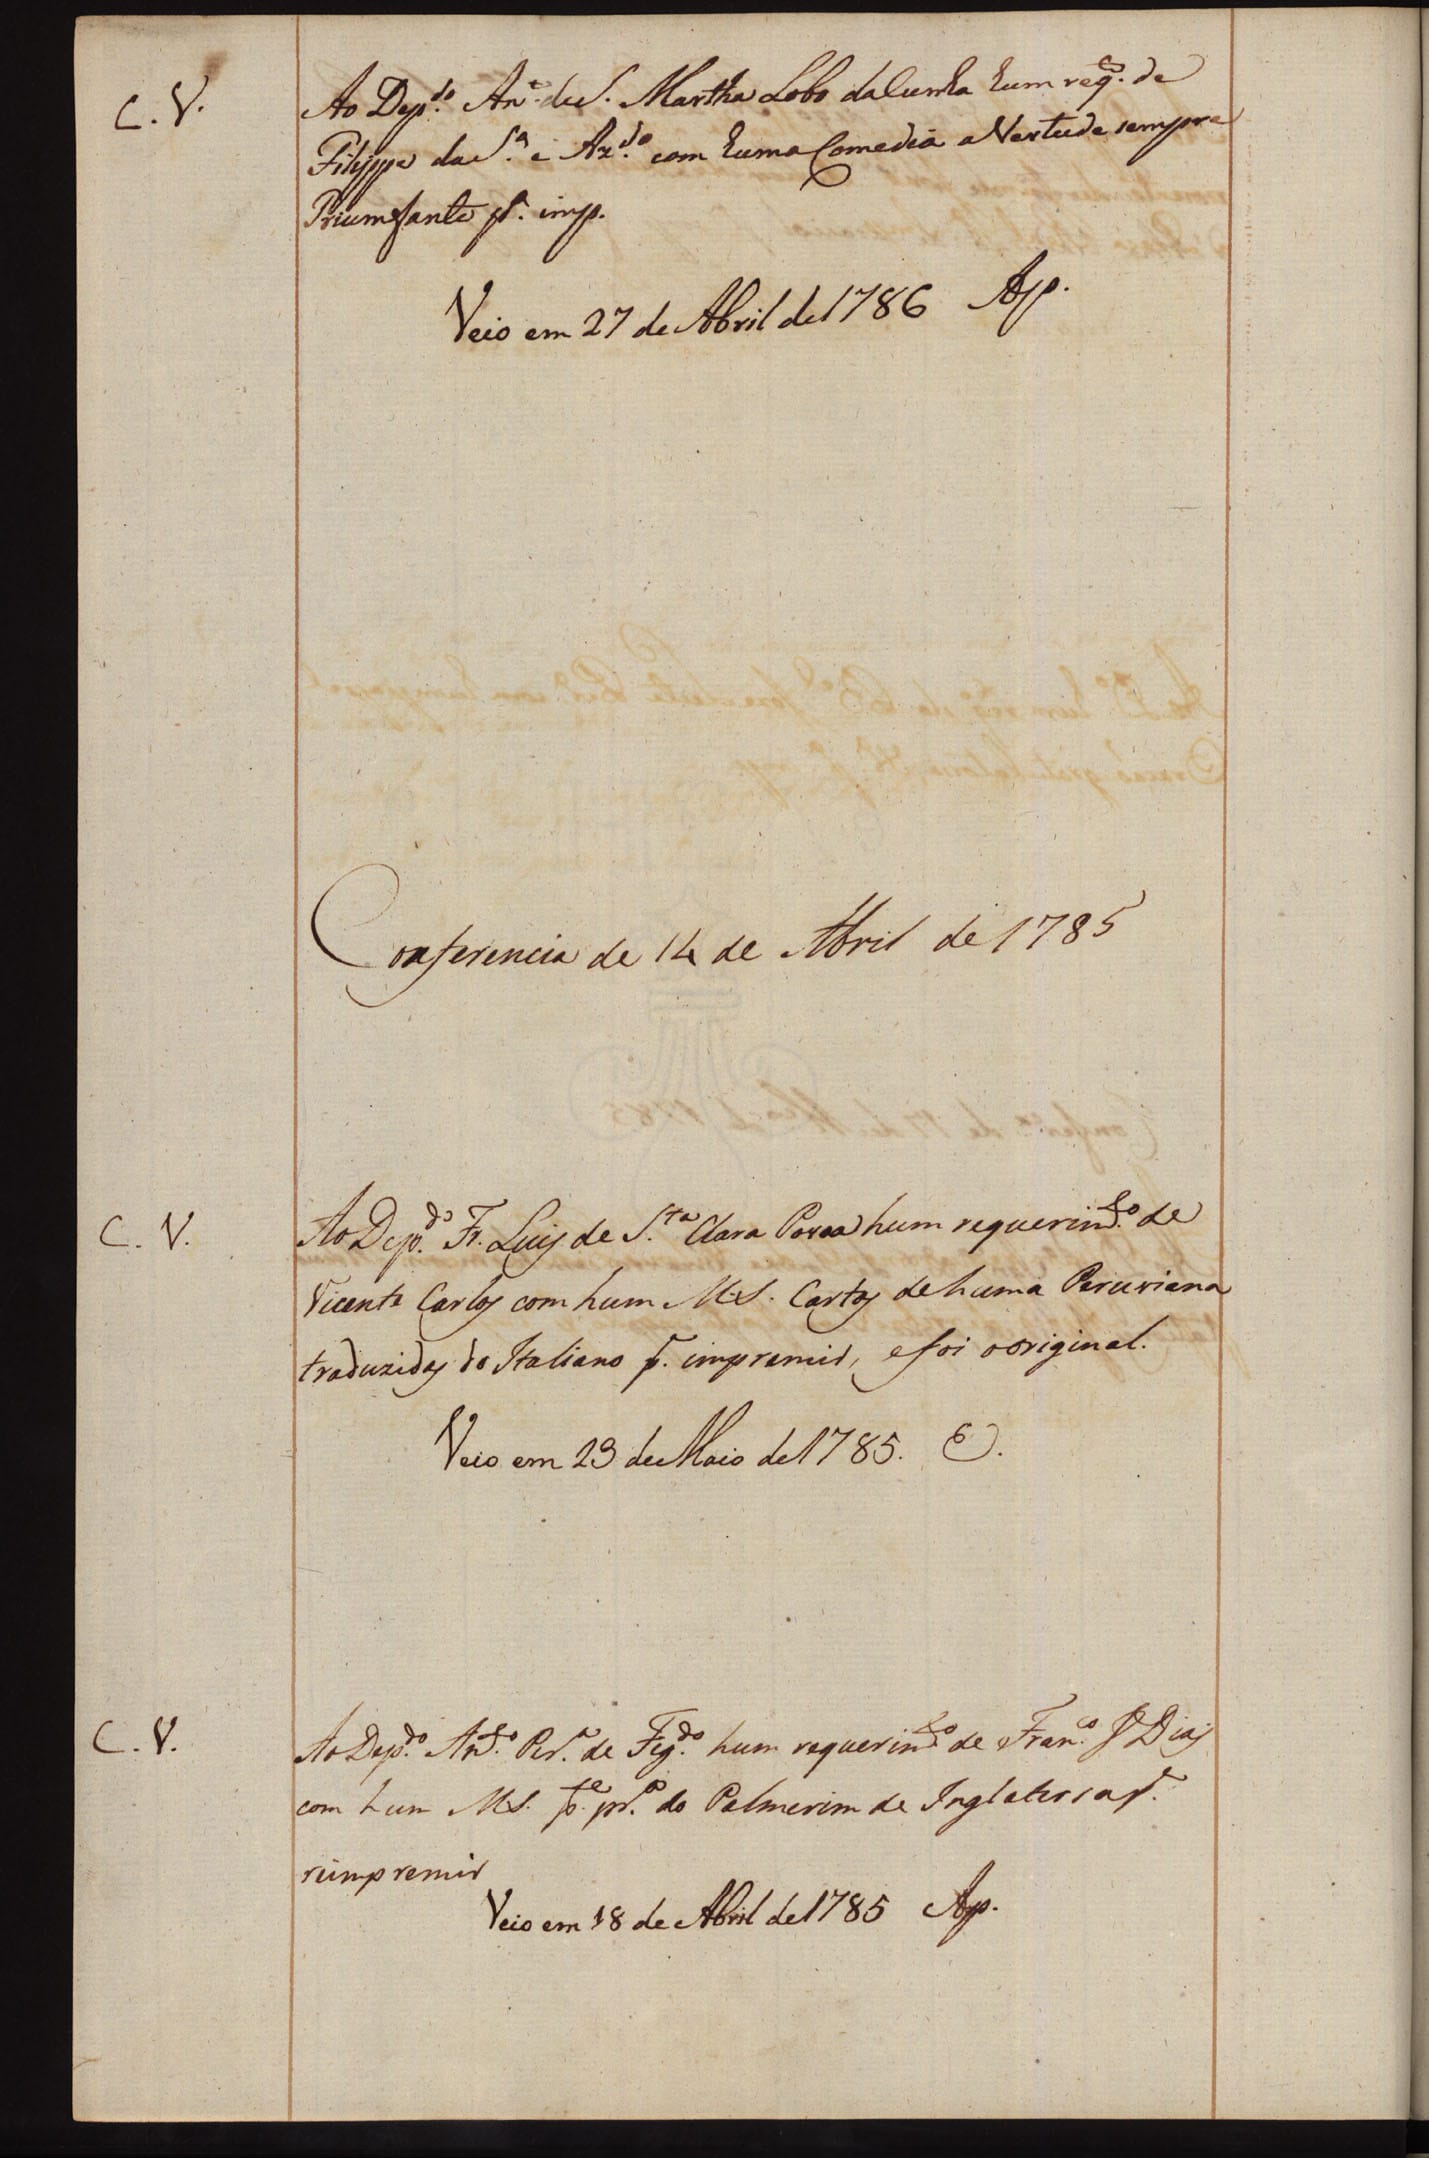 C. V.
Ao Dep.do An.to de S. Martha Lobo da Cunha hum req.to de
Filippe da S.a e Az.do com huma Comedia a Vertude sempre
Triumfante p.a imp.
Veio em 27 de Abril de 1786 Ap.
Conferencia de 14 de Abril de 1785
C. V.
Ao Dep.do Fr. Luis de S.ta Clara Povoa hum requerim.to de
Vicente Carlos com hum M.S. Cartas de huma Peruviana
traduzidas do Italiano p.a impremir, e foi o original.
Veio em 23 de Maio de 1785. E.
C. V.
Ao Dep.do Ant.o Per.a de Fig.do hum requerim.to de Fran.co Je Dias
com hum M.S. p.te pr.a do Palmerim de Inglaterra p.a
reimpremir
Veio em 18 de Abril de 1785 Ap.